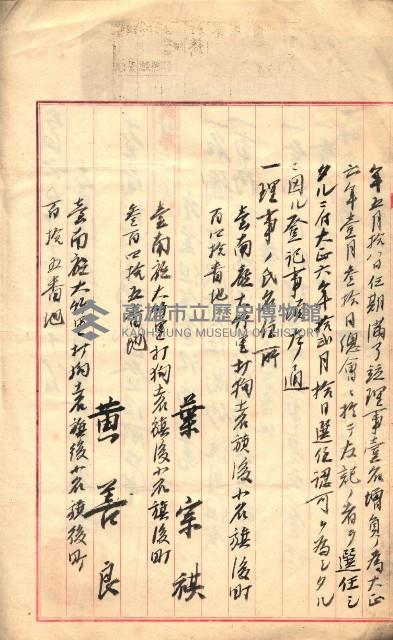 年五月拾八日任期満了並理事壹名増員ノ為大正
六年壹月叁拾日總會ニ於テ左記ノ者ヲ選任シ
タルニ付大正六年拾弍月拾日選任認可ヲ為シタル
ニ因ル登記事項
一理事ノ氏名住所
臺南廳大竹里打狗土名旗後小名旗後町
百四拾番地
葉宗祺
臺南廳大竹里打狗土名旗後小名旗後町
叁百四拾五番地
黄善良
臺南廳大竹里打狗土名旗後小名旗後町
百拾五番地
高雄市立歷史博物館
KAOHSIUNG MUSEUM OF HISTORY